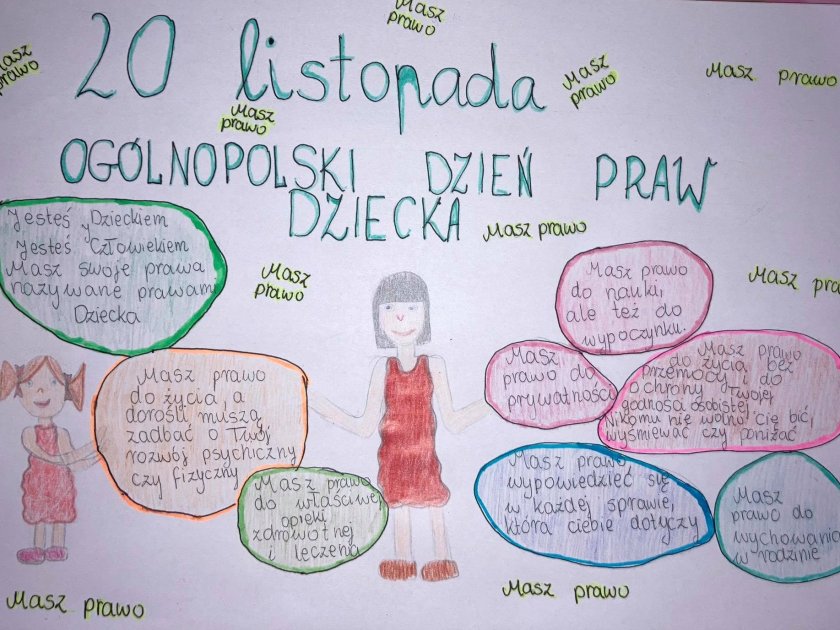 Masz
prawo
20 listopada
Masz
prawo
Masz
prawo
Masz prawo
Masz
prawo
OGÓLNOPOLSKI DZIEŃ PRAW
DZIECKA
Masz prawo
Jesteś Dzieckiem
Jesteś Człowiekiem
Masz swoje prawa
nazywane prawami
Dziecka
Masz
prawo
Masz prawo
do nauki,
ale też do
wypoczynku.
Masz
Masz
prawo do
prywatności
Masz prawo
do życia bez
przemocy i do
ochrony Twojej
godności osobistej.
Nikomu nie wolno cię bić,
wyśmiewać czy poniżać
Masz prawo
do życia, a
dorośli muszą
zadbać o Twój
rozwój psychiczny
czy fizyczny
Masz prawo
do właściwej
opieki
zdrowotnej
i leczenia
Masz prawo
wypowiedzieć się
w każdej sprawie,
która ciebie dotyczy
Masz
prawo do
wychowania
w rodzinie
Masz prawo
Masz prawo